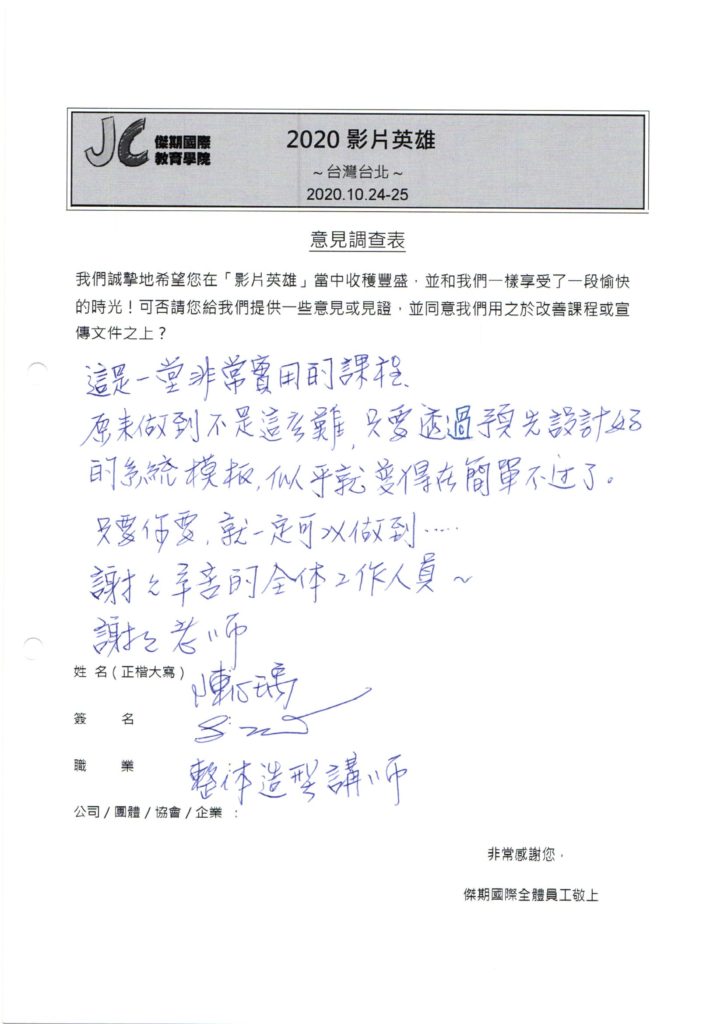 JC 傑期國際
教育學院
2020 影片英雄
~台灣台北~
2020.10.24-25
意見調查表
我們誠摯地希望您在「影片英雄」當中收穫豐盛，並和我們一樣享受了一段愉快
的時光！可否請您給我們提供一些意見或見證，並同意我們用之於改善課程或宣
傳文件之上？
這是一堂非常實用的課程、
原來做到不是這么難，只要透過預先設計好
的系統模板，似乎就變得在簡單不过了。
只要你要，就一定可以做到……
謝謝辛苦的全体工作人員~
謝謝老師
姓 名 ( 正楷大寫 ) 陳
簽 名
職 業 整体造型講師
公司 / 團體 / 協會 / 企業 ：
非常感謝您，
傑期國際全體員工敬上